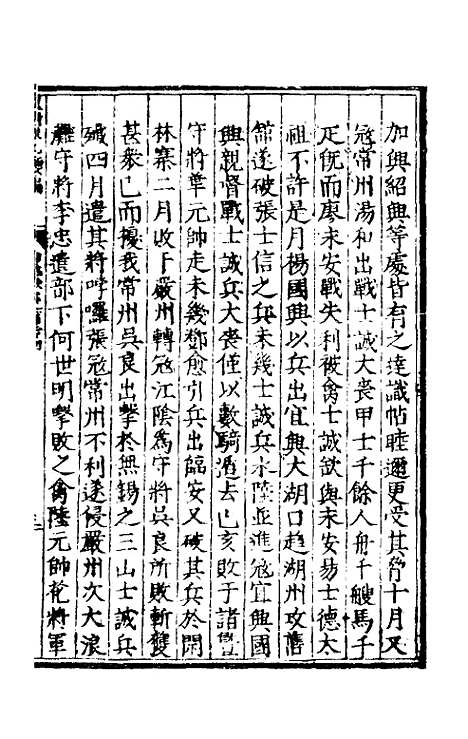 加興紹興等處皆有之達識帖睦邇更受其脅十月又
寇常州湯和出戰士誠大喪甲士千餘人舟千艘馬子
疋既而廖永安戰失利被禽士誠欲與永安易士德太
祖不許是月楊國興以兵出宜興大湖口趋湖州攻舊
舘遂破張士信之兵未幾士誠兵水陸並進寇宜興國
興親督戰士誠兵大喪僅以數騎遁去己亥敗于諸曁
守將單元帥走未幾鄧愈引兵出臨安又破其兵於閑
林寨二月收下嚴州轉寇江陰為守將吳良所敗斬獲
甚衆已而擾我常州吳良出擊於無錫之三山士誠兵
殲四月遣其將呼囉張寇常州不利遂侵嚴州次大浪
灘守將李忠遣部下何世明擊敗之禽陸元帥花將軍